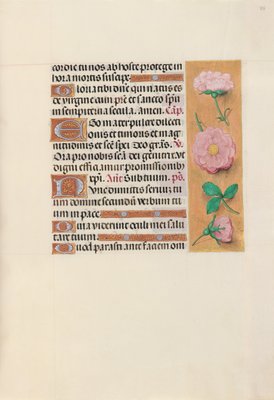 cordie tu nos ab hoste protege in
hora mortis suscipe.
Gloria tibi dñe qui natus es
de virgine cum p̄re et sancto sp̄u
in sempiterna secula. amen. Cap.
Ego mater pulcre dilecti
onis et timoris et mag
nitudinis et sc̄e spei Deo gr̄as. V.
Ora pro nobis sc̄a dei genitrix ut
digni efficiamur promissionibus
xp̄i. Añt Sub tuum. ps.
Nunc dimittis servum tu
um domine secundum verbum tu
um in pace
Quia viderunt oculi mei salu
tare tuum
Quod parasti ante faciem om